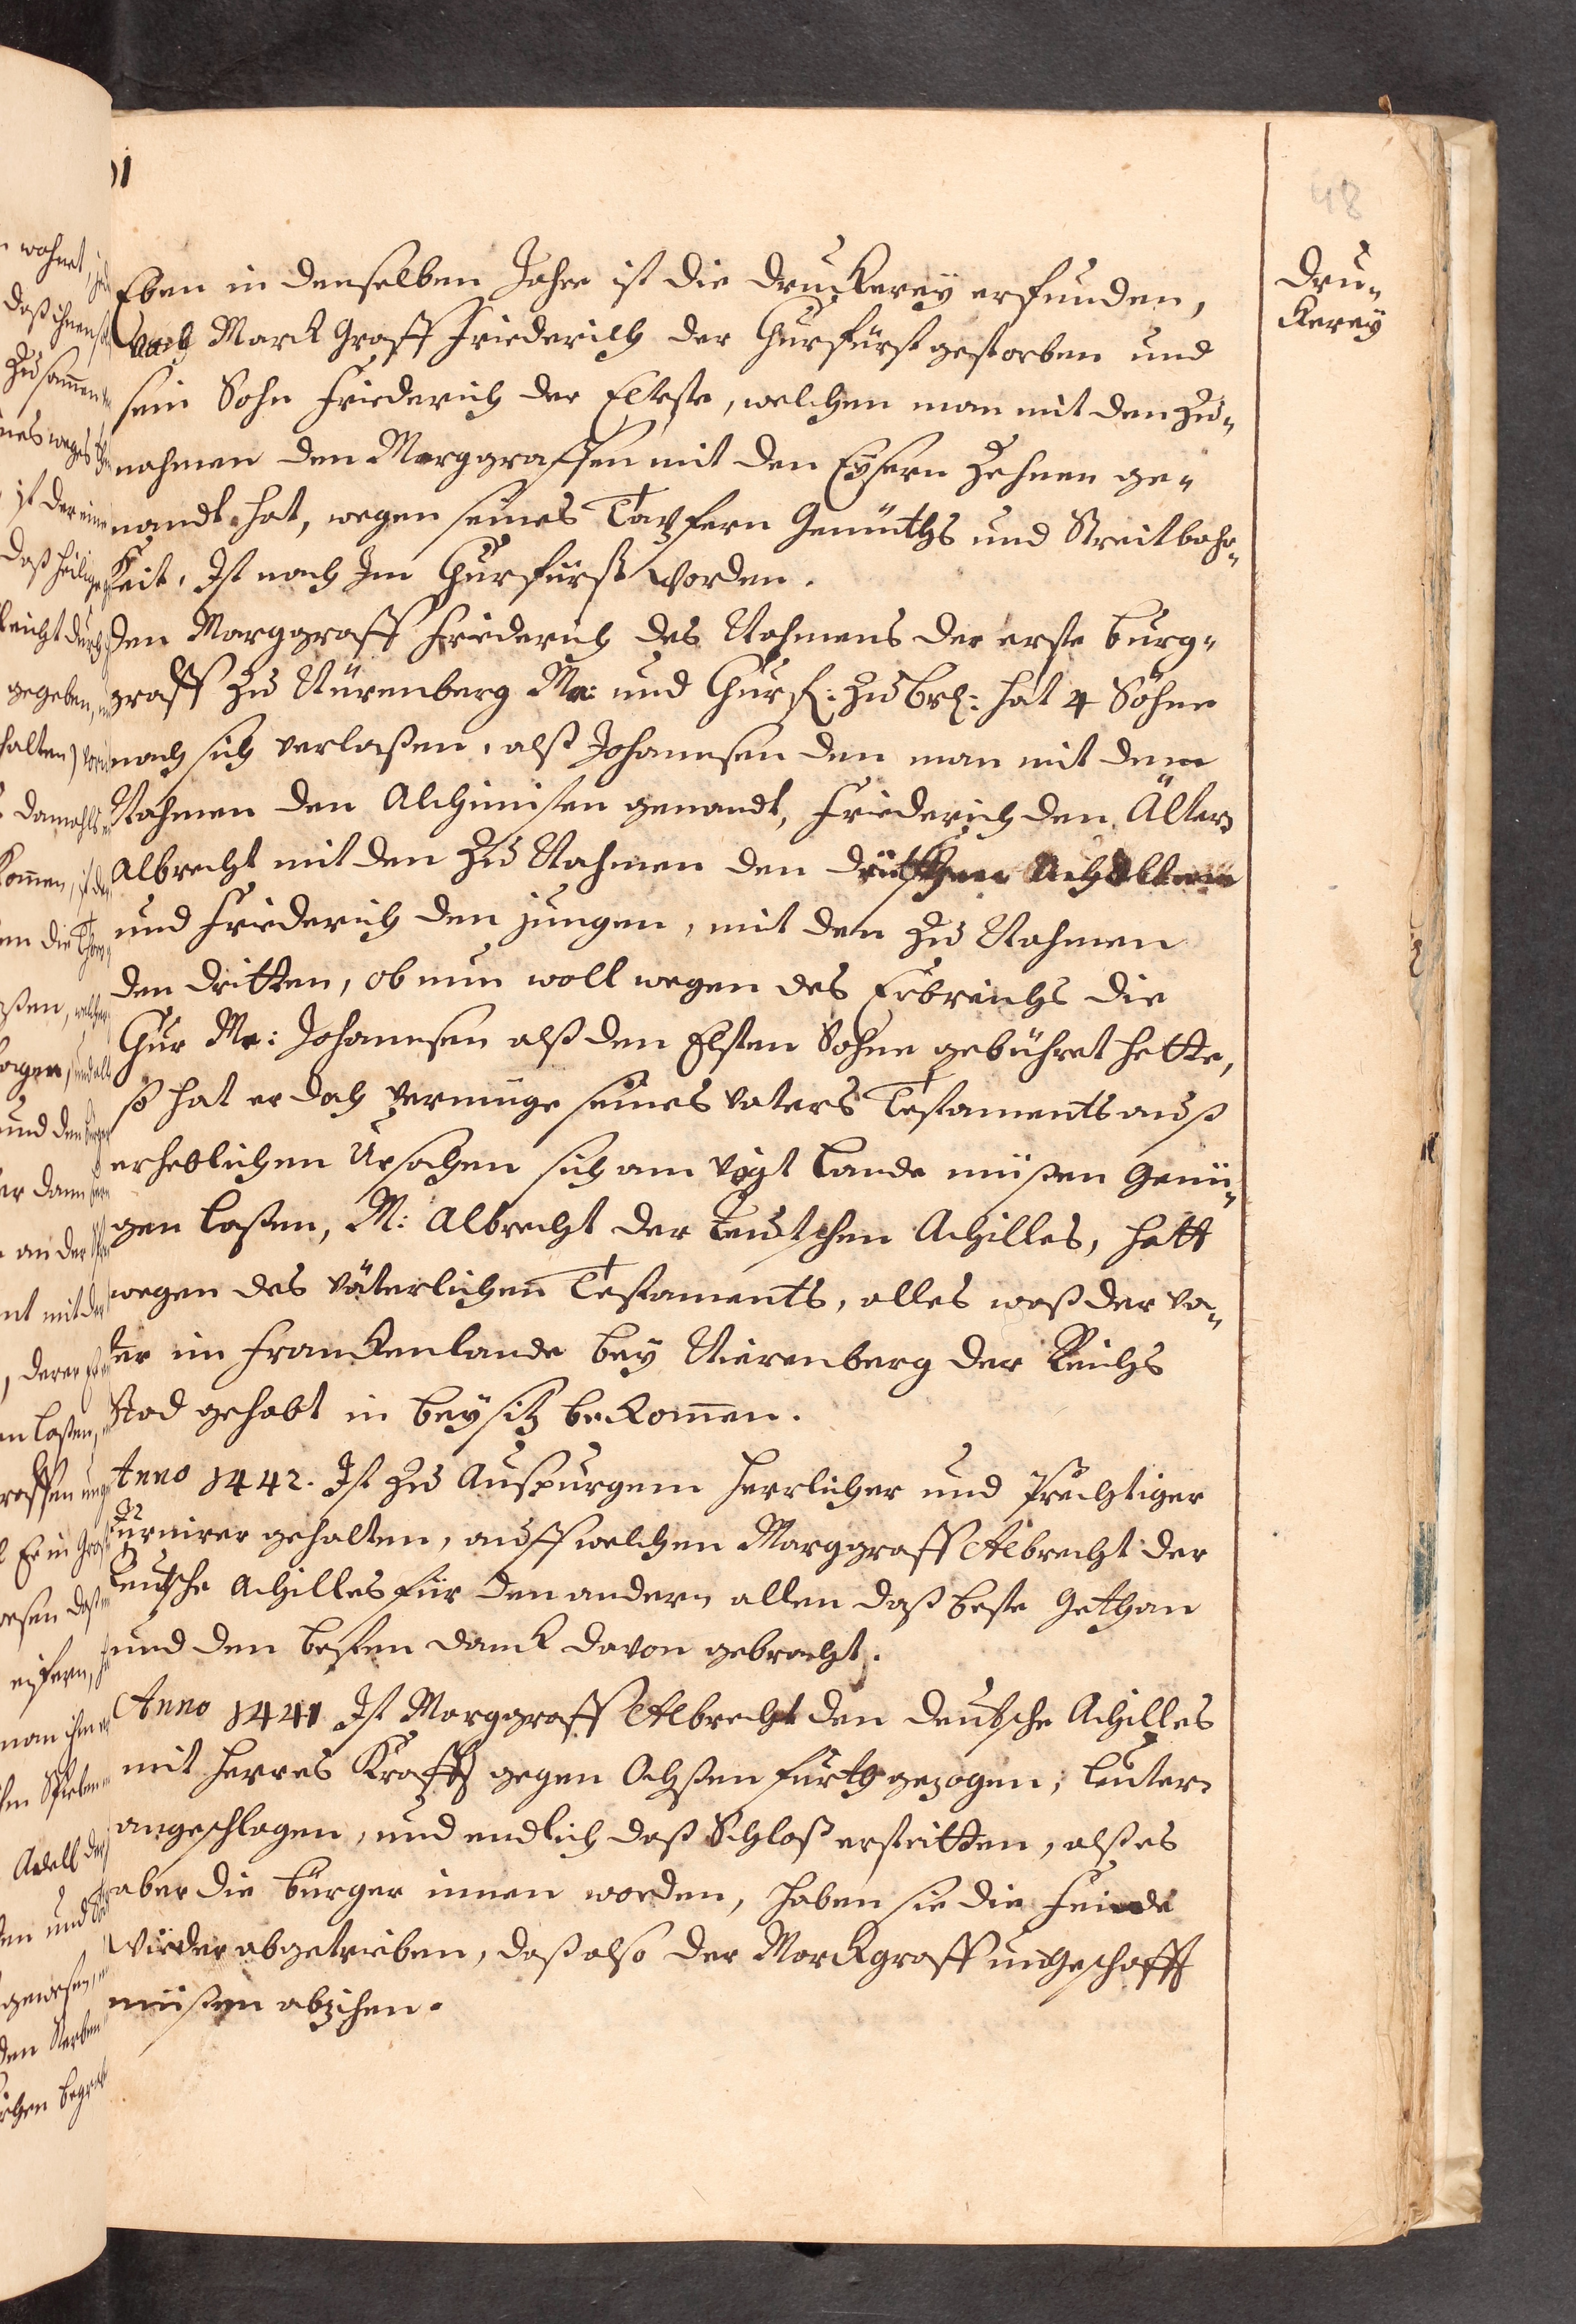 48
Dru-
Kereÿ
Eben in denselben Jahre ist die DrucKereÿ erfunden,
Auch MarckGraff Friederich der Churfürst gestorben und
sein Sohn Friederich der Elteste, welchen man mit den Zu-
nahmen den Marggraffen mit den Eÿsern Zehnen ge-
nandt hat, wegen seines Tapfern Gemüths und Streitbahr-
Keit, Ist nach Im Churfürst worden.
Den Marggraff Friederich des Nahmens der erste Burg-
graff zu Nürenberg M: und Churf: zu Br: hat 4 Söhne
nach sich verlaßen, alß Johannsen den man mit dem
Nahmen den Alchimisten genandt, Friederich den Älter
Albrecht mit den Zu Nahmen den deütschen Achillem
und Friederich den jungen, mit den Zu Nahmen
den dritten, ob nun woll wegen des Erbreichs die
Chur M: Johannsen alß den Elsten Sohne gebühret hette,
so hat er doch vermüge seines Vaters Testaments auß
erheblichen Ursachen sich am Vogtlande müßen Genü-
gen laßen, M: Albrecht der teutschen Achilles, hatt
wegen des väterlichen Testaments, alles waß der va-
ter im FranckenLande beÿ Nierenberg der Reichs
Stad gehabt in beÿsitz beKommen.
Anno 1442. Ist zu Auspurgem herrlicher und Prechtiger
Turnirer gehalten, auff welchen Marggraff Albrecht der
teutsche Achilles für den andern allen daß beste Gethan
und den besten danck davon gebracht.
Anno 1441 Ist Marggraff Albrecht den deutsche Achilles
mit Herres Krafft gegen Ochsenfurth gezogen, Leuter
angeschlagen, und endlich daß Schloß erstritten, alß es
aber die Bürger innen worden, haben sie die Feinde
wieder abgetrieben, daß also der MarckGraff ungeschafft
müßen abzihen.